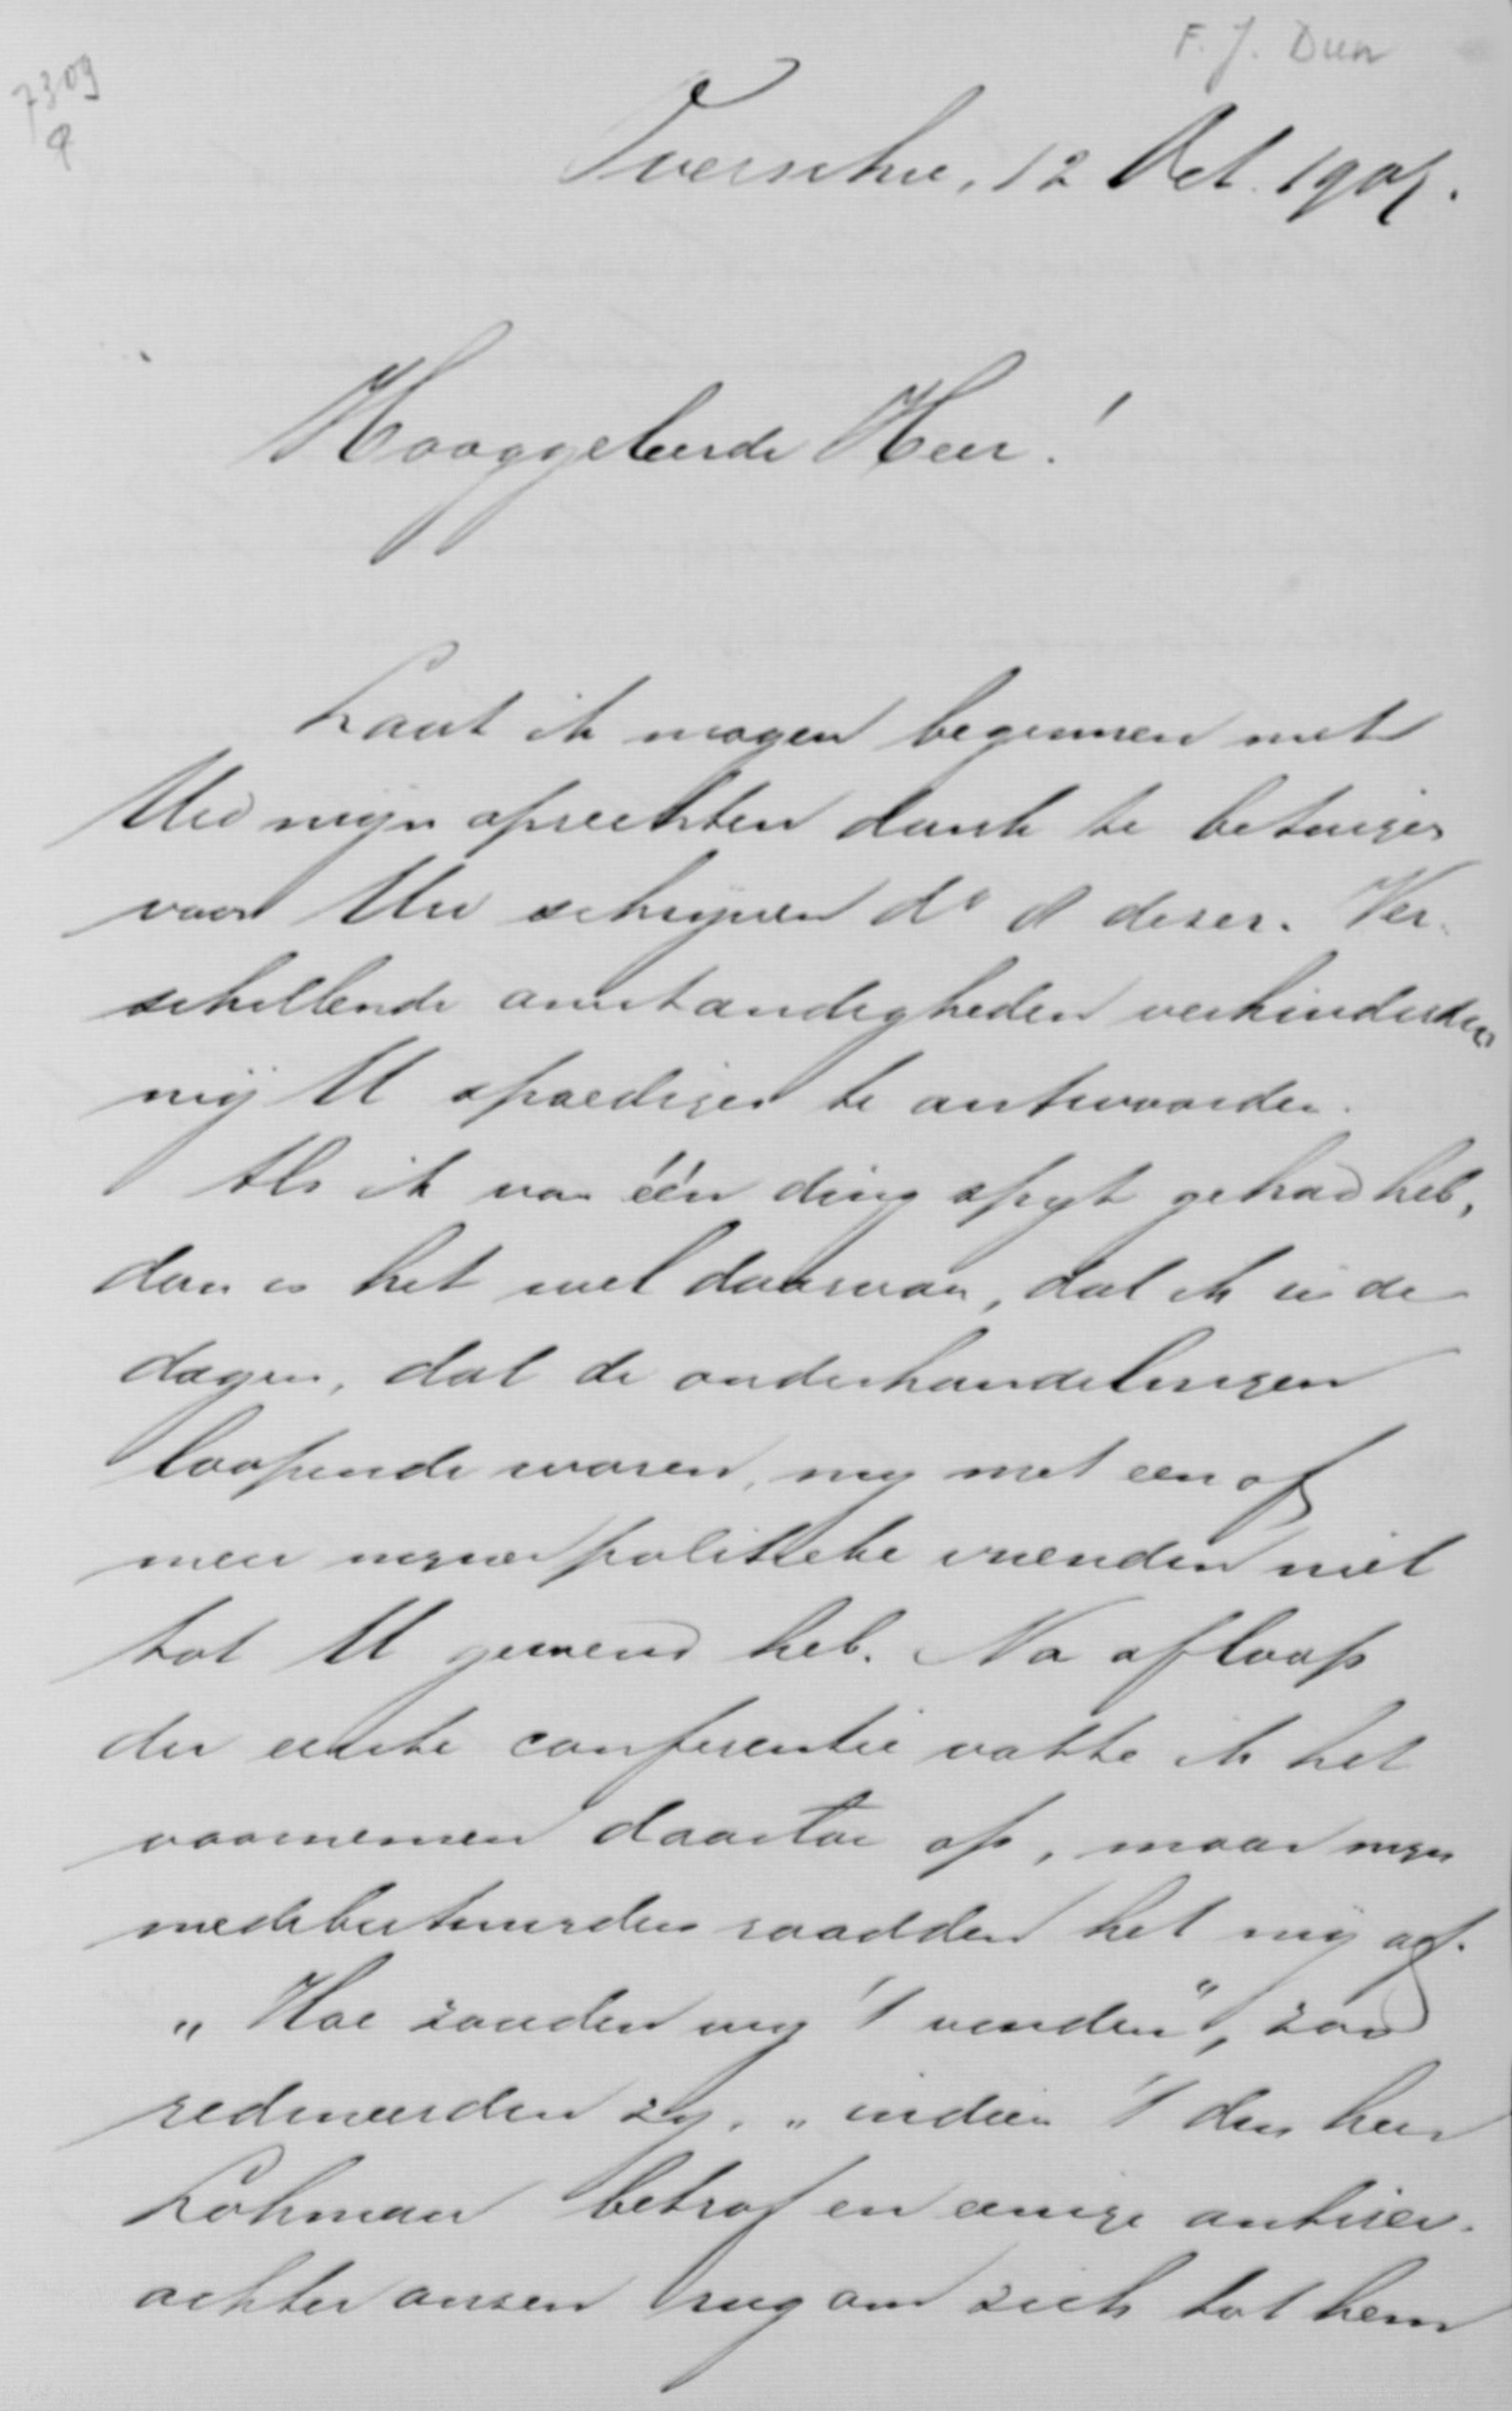 F. J. Dun
7309
Overschie, 12 Oct. 1905.
Hooggeleerde Heer!
Laat ik mogen beginnen met
Uw mijn oprechten dank te betuigen
voor Uw schrijven dº deser. Ver-
schillende omstandigheden verhinderden
mij U spoediger te antwoorden.
Als ik van één ding spijt gehad heb,
dan is het wel daarvan, dat ik in de
dagen, dat de onderhandelingen
loopende waren, mij met een of
meer mijner politieke vrienden niet
tot U gewend heb. Na afloop
der eerste conferentie vatte ik het
voornemen daartoe op, maar mijn
medebestuurders raadden het mij af.
„Hoe zouden wij 't vinden", zoo
redeneerden zij, „indien 't den heer
Lohman betrof en eenige antirev.
achter onzen rug om zich tot hem